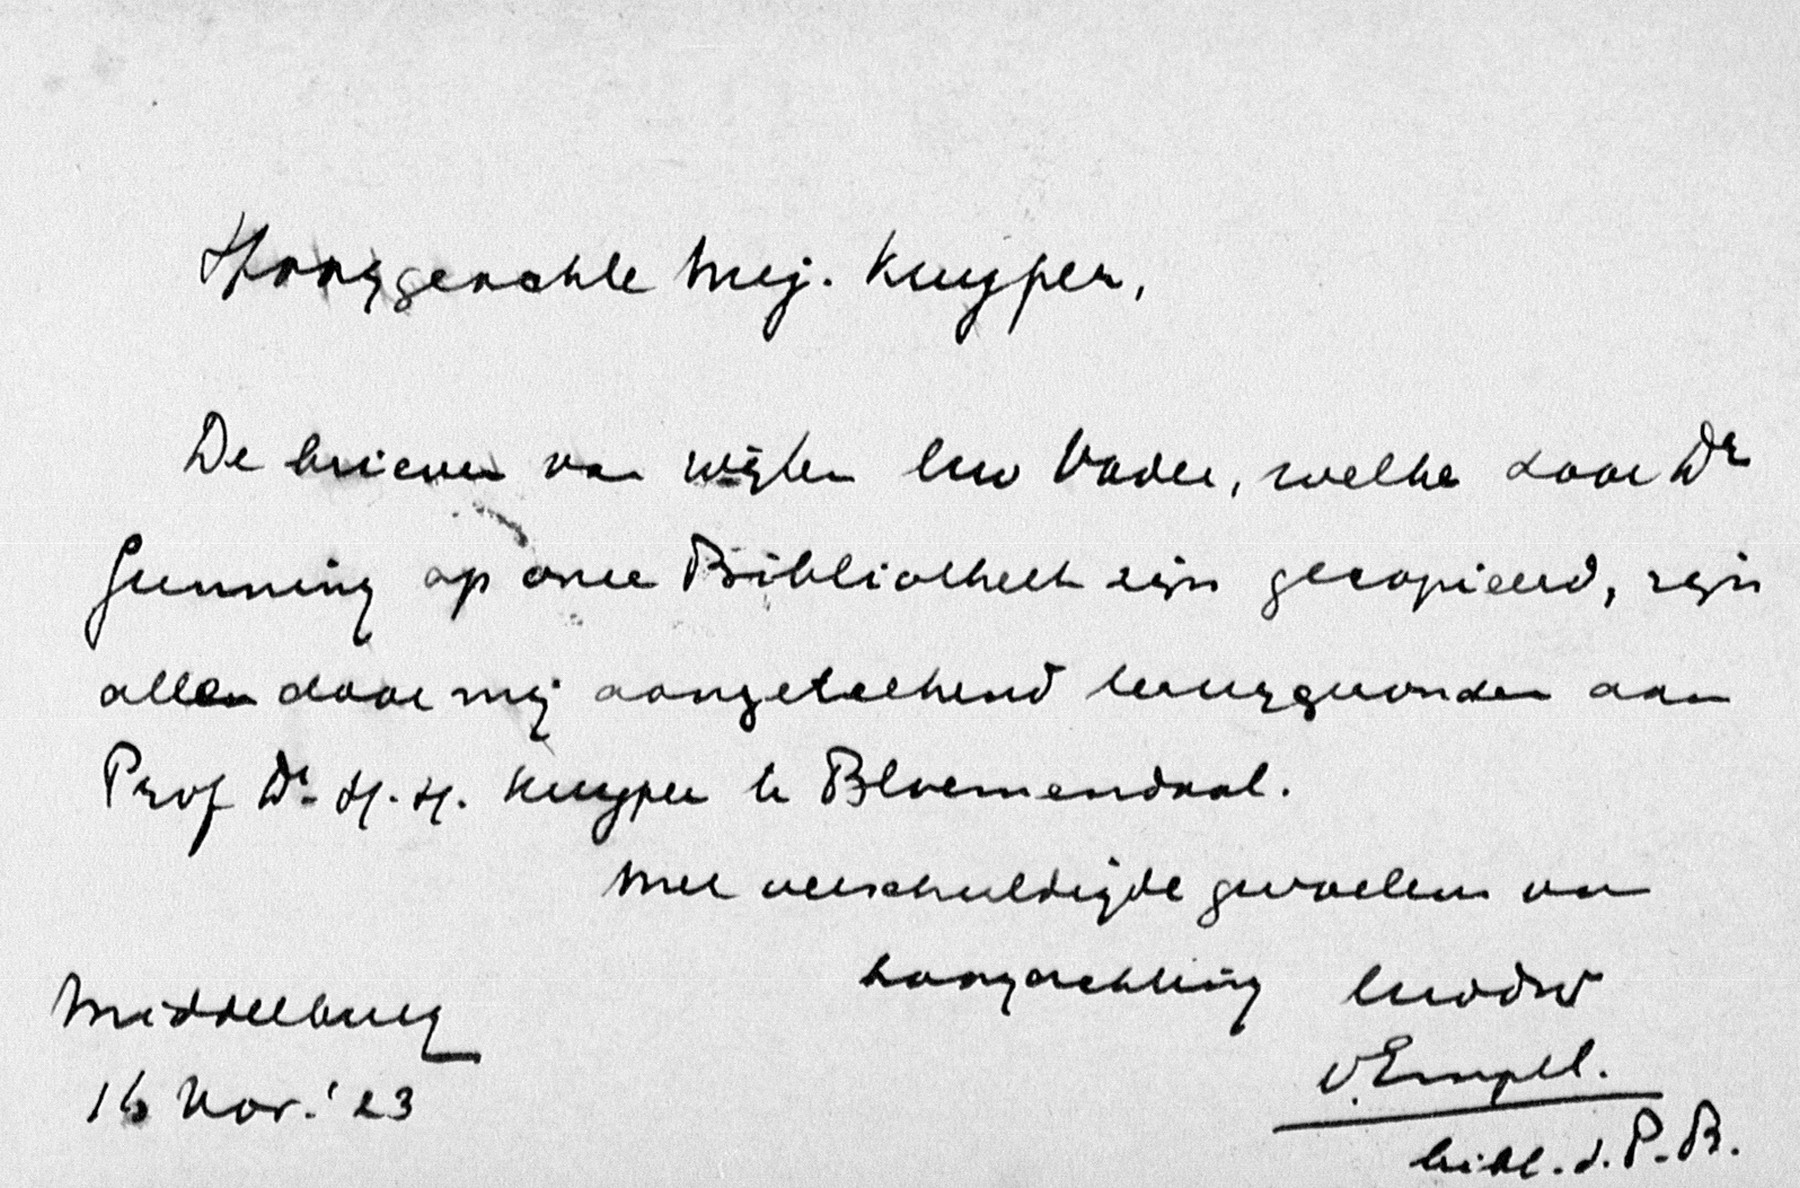 Hooggeachte Mej. Kuyper,
De brieven van wijlen Uw Vader, welke door Dr
Gunning op onze Bibliotheek zijn gecopieerd, zijn
allen door mij aangeteekend teruggezonden aan
Prof Dr. H. H. Kuyper te Bloemendaal.
Met verschuldigde gevoelens van
hoogachting Uwdw
v. Empel.
bibl. d. P. B.
Middelburg
16 Nov. '23